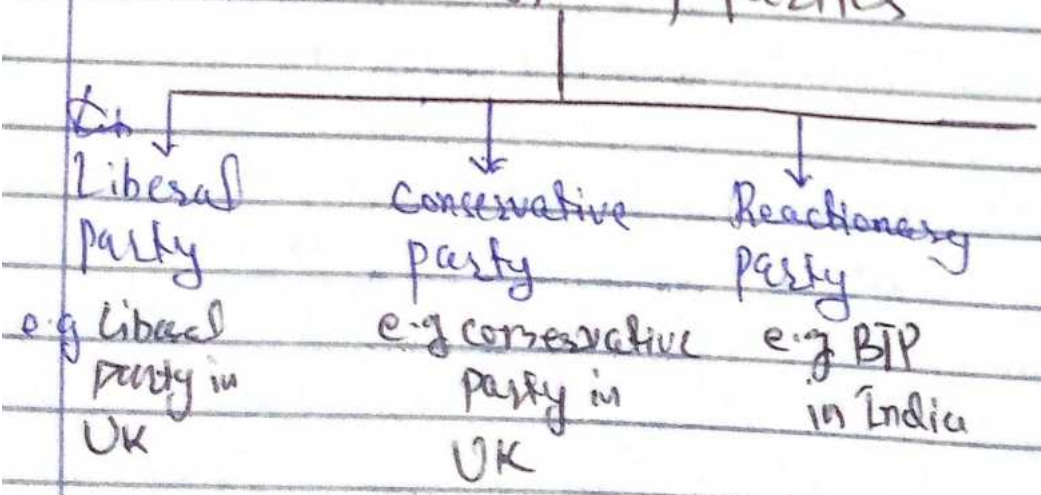 parties
Liberal
party
e.g Liberal
party in
UK
Conservative
party
e.g conservative
party in
UK
Reactionary
party
e.g BJP
in India